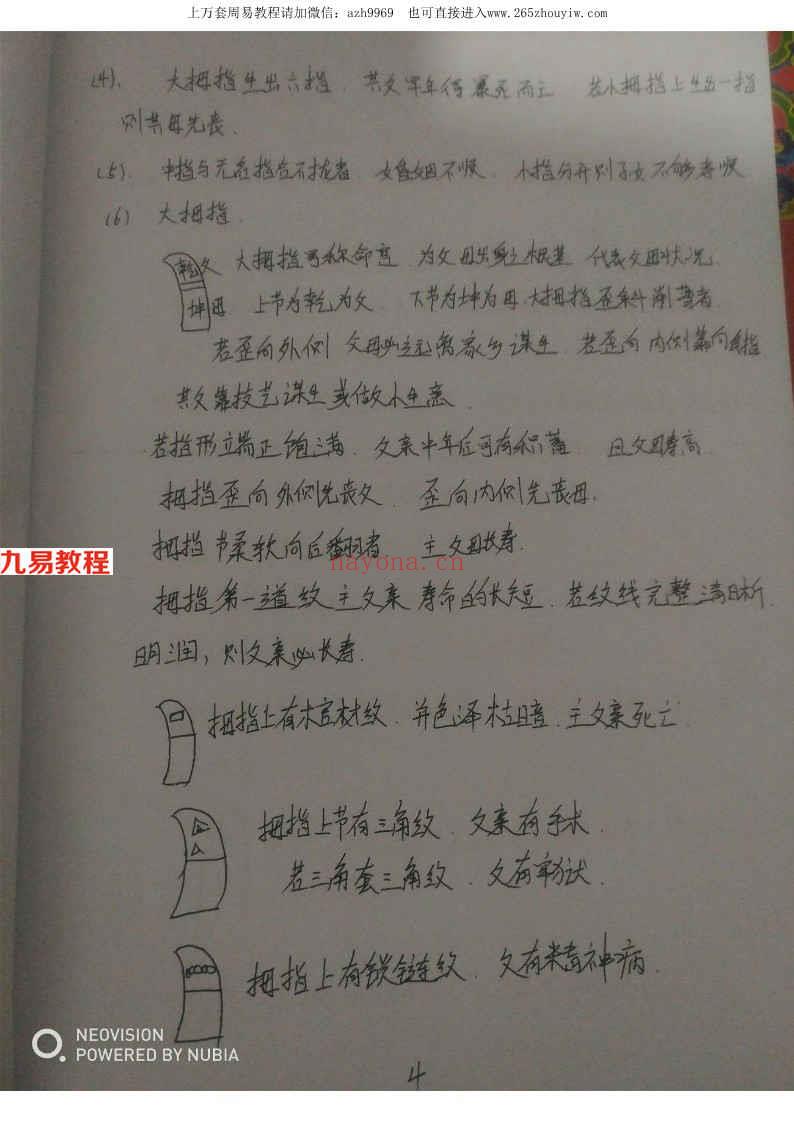 上万套周易教程请加微信：azh9969 也可直接进入www.265zhouyiw.com
(4). 大拇指生出六指. 其父早年得暴死而亡 若小拇指上生出一指
则其母先丧.
(5). 中指与无名指合不拢者. 婚姻不顺. 小指分开则子女不够孝顺
(6) 大拇指.
乾父 大拇指可称命宫 为父母出身之根基 代表父母状况.
坤母 上节为乾为父 下节为坤为母.大拇指歪斜削薄者.
若歪向外侧 父母必远离家乡谋生 若歪向内侧靠向食指
其父靠技艺谋生或做小生意.
若指形立端正饱满. 父亲中年后可有积蓄 且父母寿高.
拇指歪向外侧先丧父. 歪向内侧先丧母.
拇指节柔软向后翻者 主父母长寿.
拇指第一道纹主父亲寿命的长短. 若纹线完整清晰.
明润，则父亲必长寿.
拇指上有棺材纹. 并色泽枯暗. 主父亲死亡
拇指上节有三角纹. 父亲有手术.
若三角套三角纹. 父有牢狱.
拇指上有锁链纹. 父有精神病.
九易教程
nayona.cn
NEOVISION
POWERED BY NUBIA
4